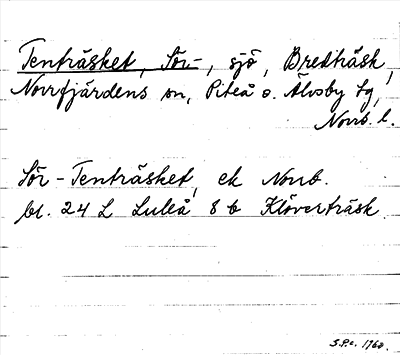 Tenträsket, Sör-, sjö, Bredträsk,
Norrfjärdens sn, Piteå o. Älvsby tg,
Norrb. l.
Sör-Tenträsket, ek Norrb.
bl. 24 L Luleå 8 b Klöverträsk